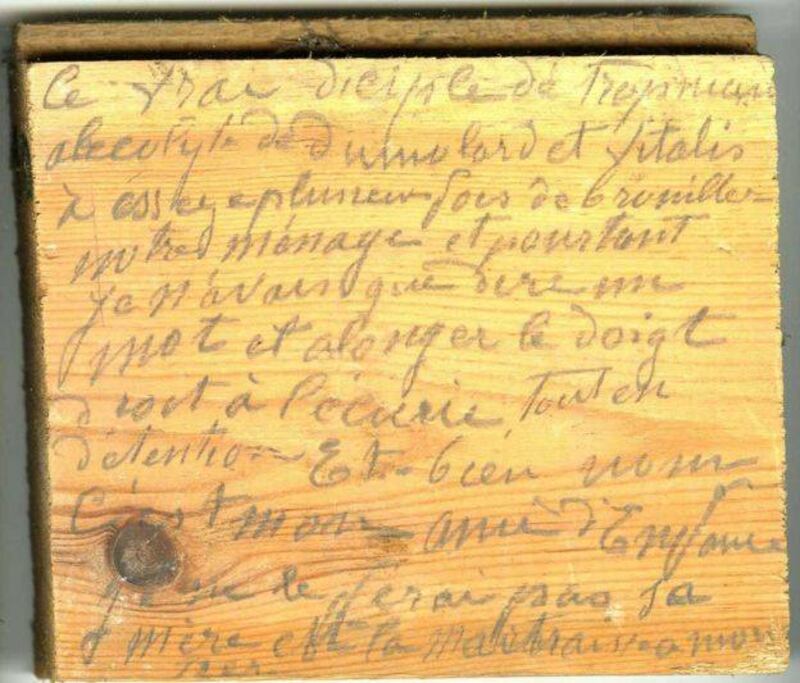 Ce vrai diciple de Tropman
de dumolard et fitalis
à éssaye plusieur fois de brouiller
notre ménage et pourtant
je n'avais que dire un
mot et alonger le doigt
droit à l'écurie tout en
détention Et bien nom
C'est mon ami d'Enfance
je ne le ferai pas sa
mère est la maitraisse a mon
per